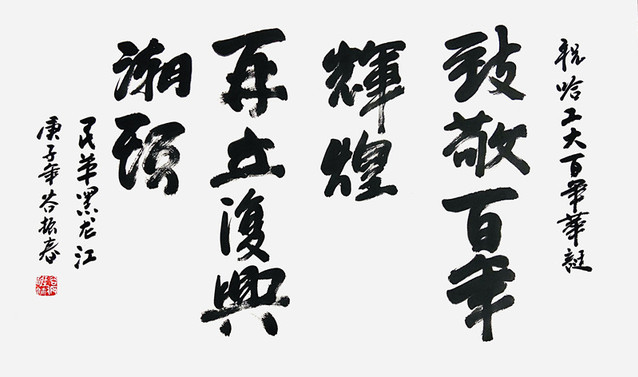 祝哈工大百年華誕
致敬百年
輝煌
再立復興
潮頭
民革黑龙江
庚子年谷振春